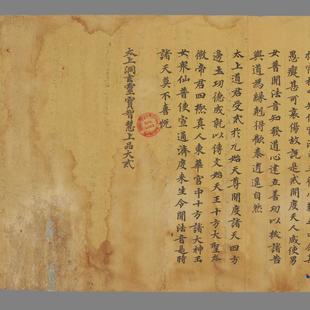 愚癡甚可哀傷故説是戒開度天人咸使男
女普聞法音知發道心建立善功以拔諸苦
與道為緣尅得歡泰逍遥自然
太上道君受戒於元始天尊開度諸天四方
邊土功德成就以傳文始天王十方大聖
帝君四極真人東華宮中十方諸大神王
女衆仙普使宣通濟度衆生今聞法音是時
諸天莫不喜悦
太上洞玄靈寳智慧上品大戒